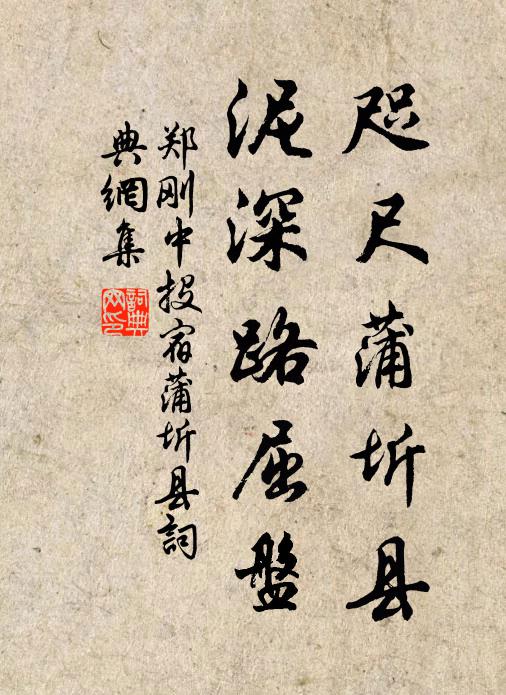 咫尺蒲圻县
泥深路屈盤
郑刚中投宿蒲圻县詞
典網集
詞典網印